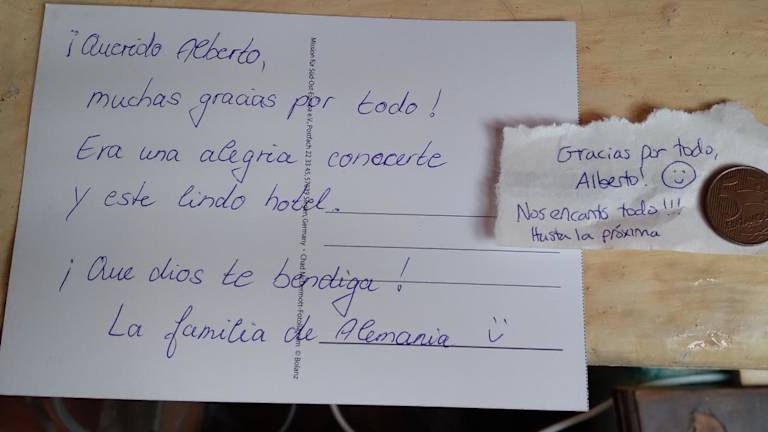 ¡Querido Alberto,
muchas gracias por todo!
Era una alegria conocerte
y este lindo hotel.
¡Que dios te bendiga!
La familia de Alemania
Mission für Süd-Ost-Europa e.V., Postfach 22 33 45, Siegen, Germany • Chad © Bolanz
Gracias por todo,
Alberto!
Nos encanto todo!!!
Hasta la próxima
5